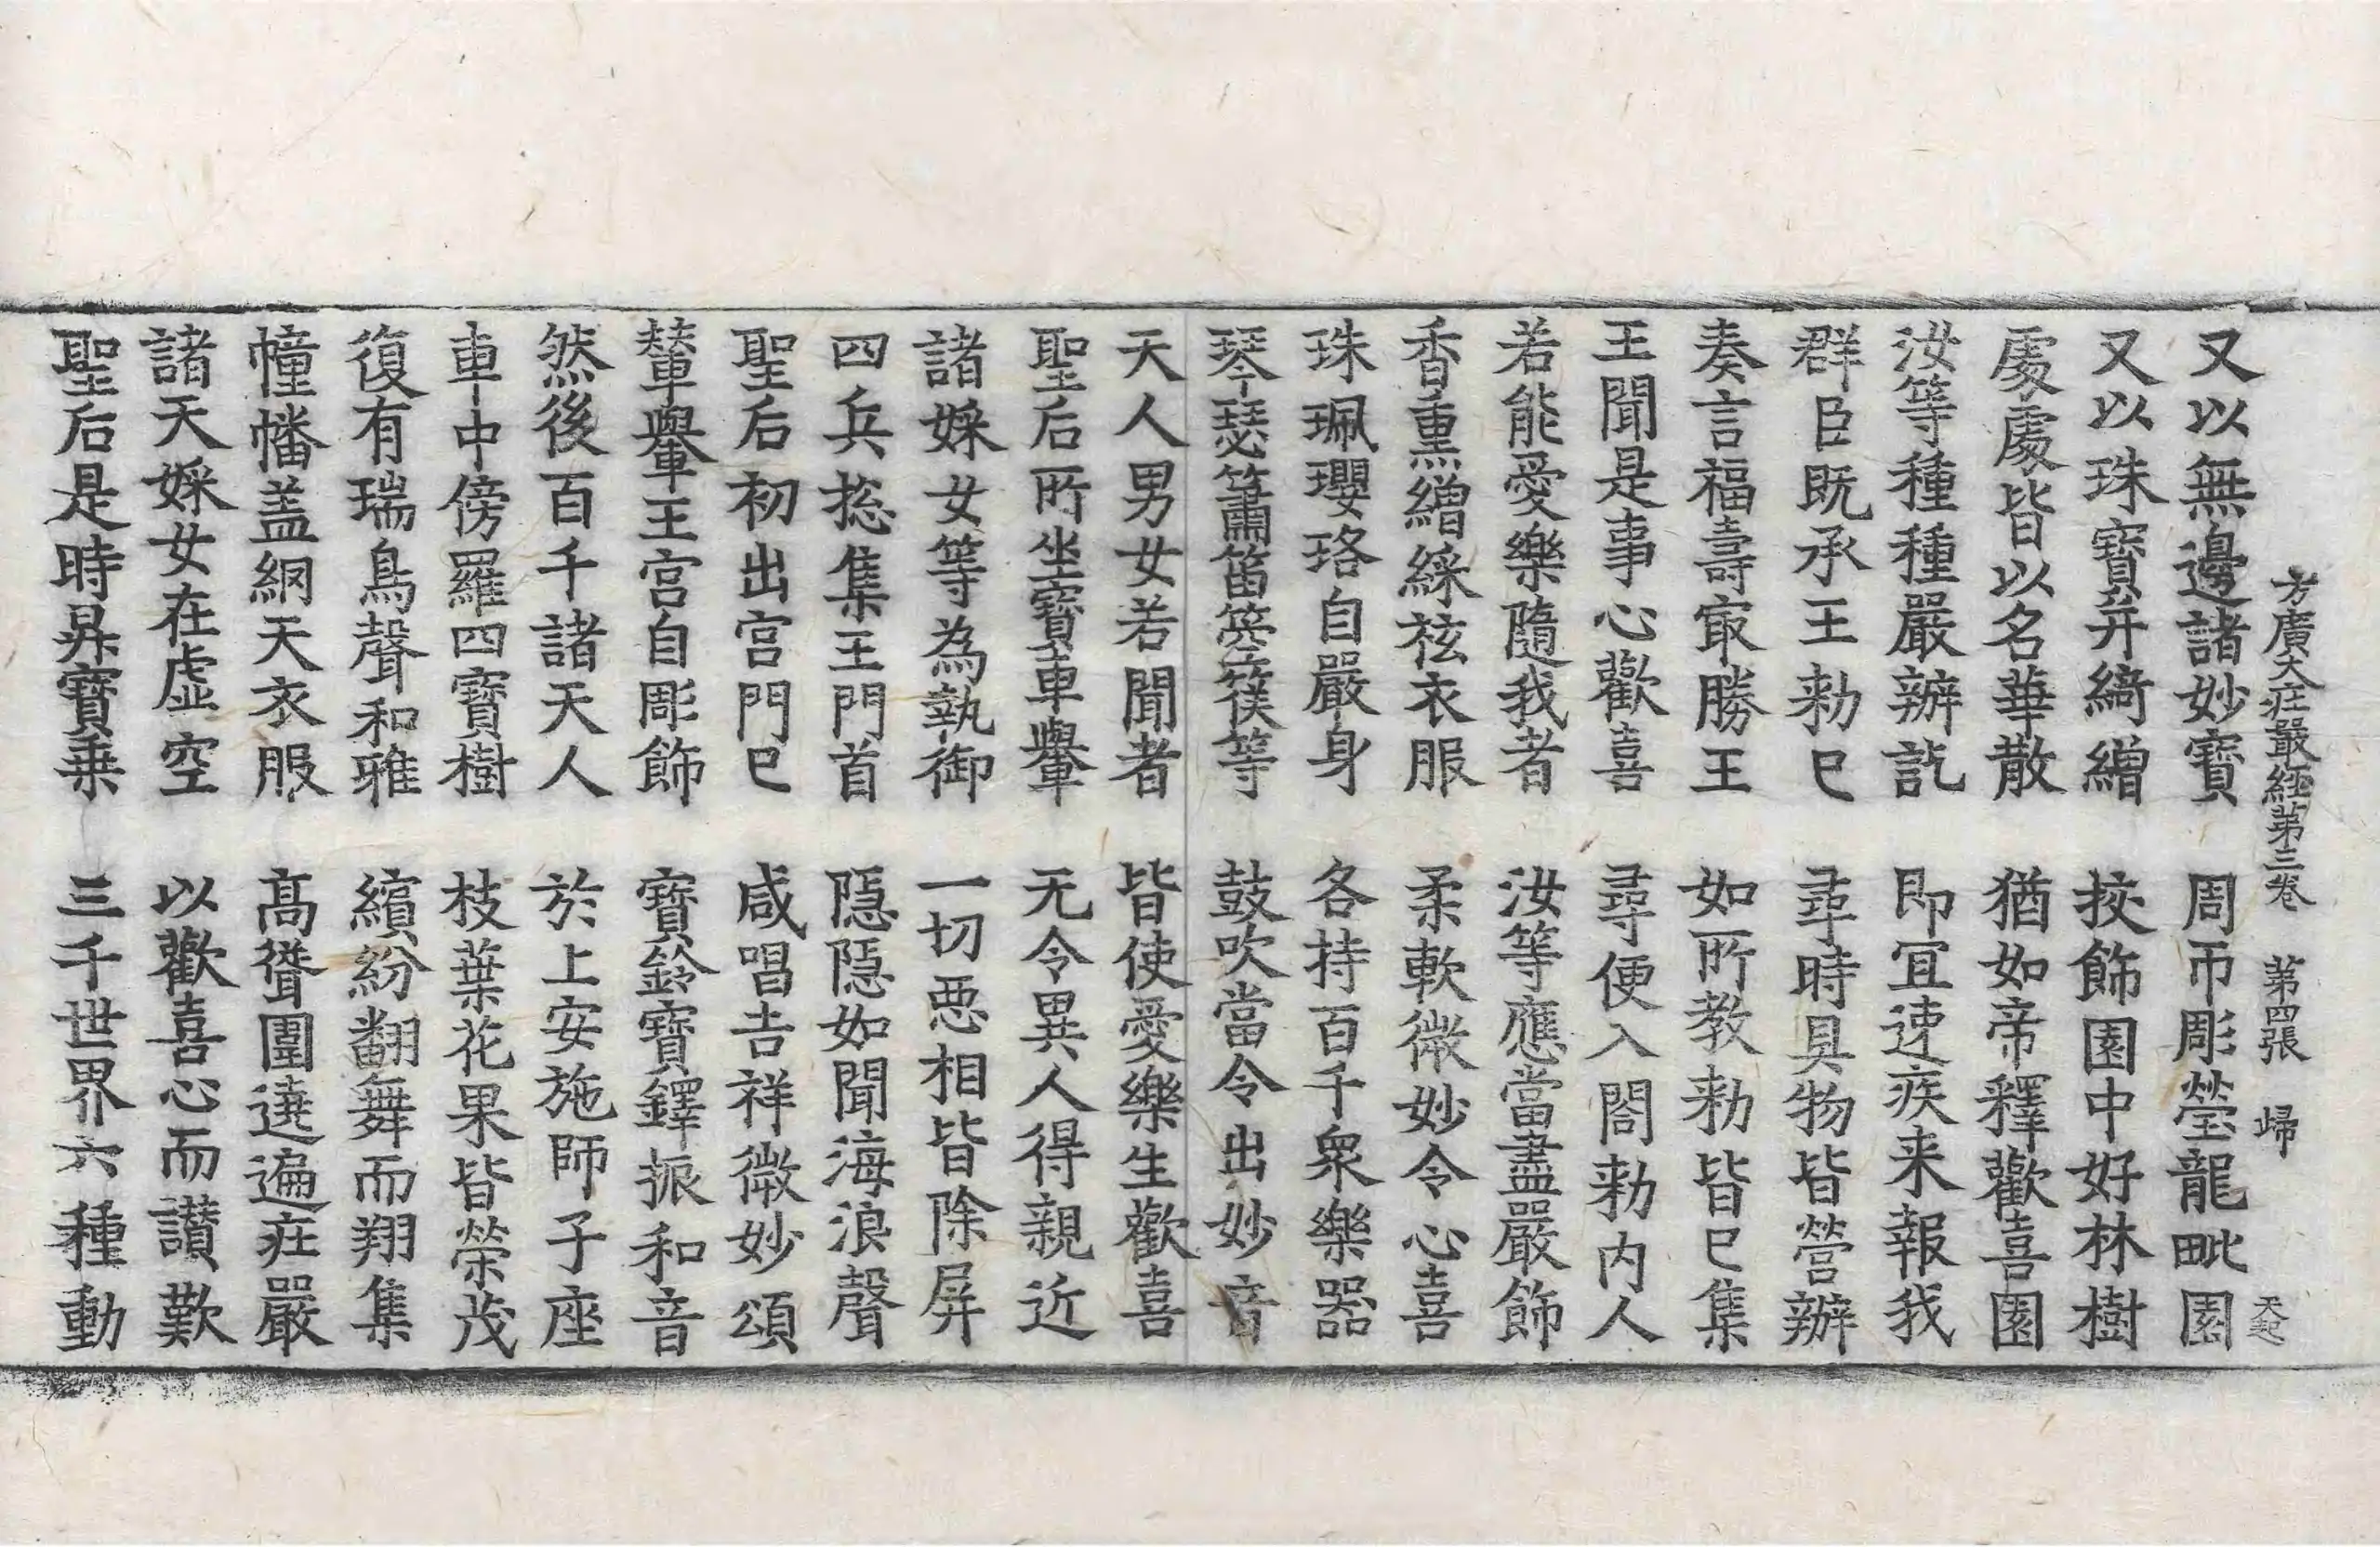 方廣大疘嚴經苐三卷　苐四張　㱕
又以無邊諸妙寶　周帀彫瑩龍毗園
又以珠寶并綺繒　挍飾園中好林樹
處處皆以名華散　猶如帝釋歡喜園
汝等種種嚴辦訖　即冝速疾来報我
群臣既承王勑已　尋時具物皆營辦
奏言福壽㝡勝王　如所教勑皆已集
王聞是事心歡喜　尋便入閤勑内人
若能愛樂隨我者　汝等應當盡嚴飾
香熏繒綵袨衣服　柔軟微妙令心喜
珠珮瓔珞自嚴身　各持百千衆樂器
琴瑟簫笛箜篌等　鼓吹當令出妙音
天人男女若聞者　皆使愛樂生歡喜
聖后所坐寶車轝　无令異人得親近
諸婇女等為執御　一切惡相皆除屏
四兵揔集王門首　隱隱如聞海浪聲
聖后初出宫門已　咸唱吉祥微妙頌
輦轝王宫自彫飾　寶鈴寶鐸振和音
然後百千諸天人　於上安施師子座
車中傍羅四寶樹　枝葉花果皆榮茂
復有瑞鳥聲和雅　繽紛翻舞而翔集
幢幡盖網天衣服　髙聳圍遶遍疘嚴
諸天婇女在虚空　以歡喜心而讃歎
聖后是時昇寶乗　三千世界六種動